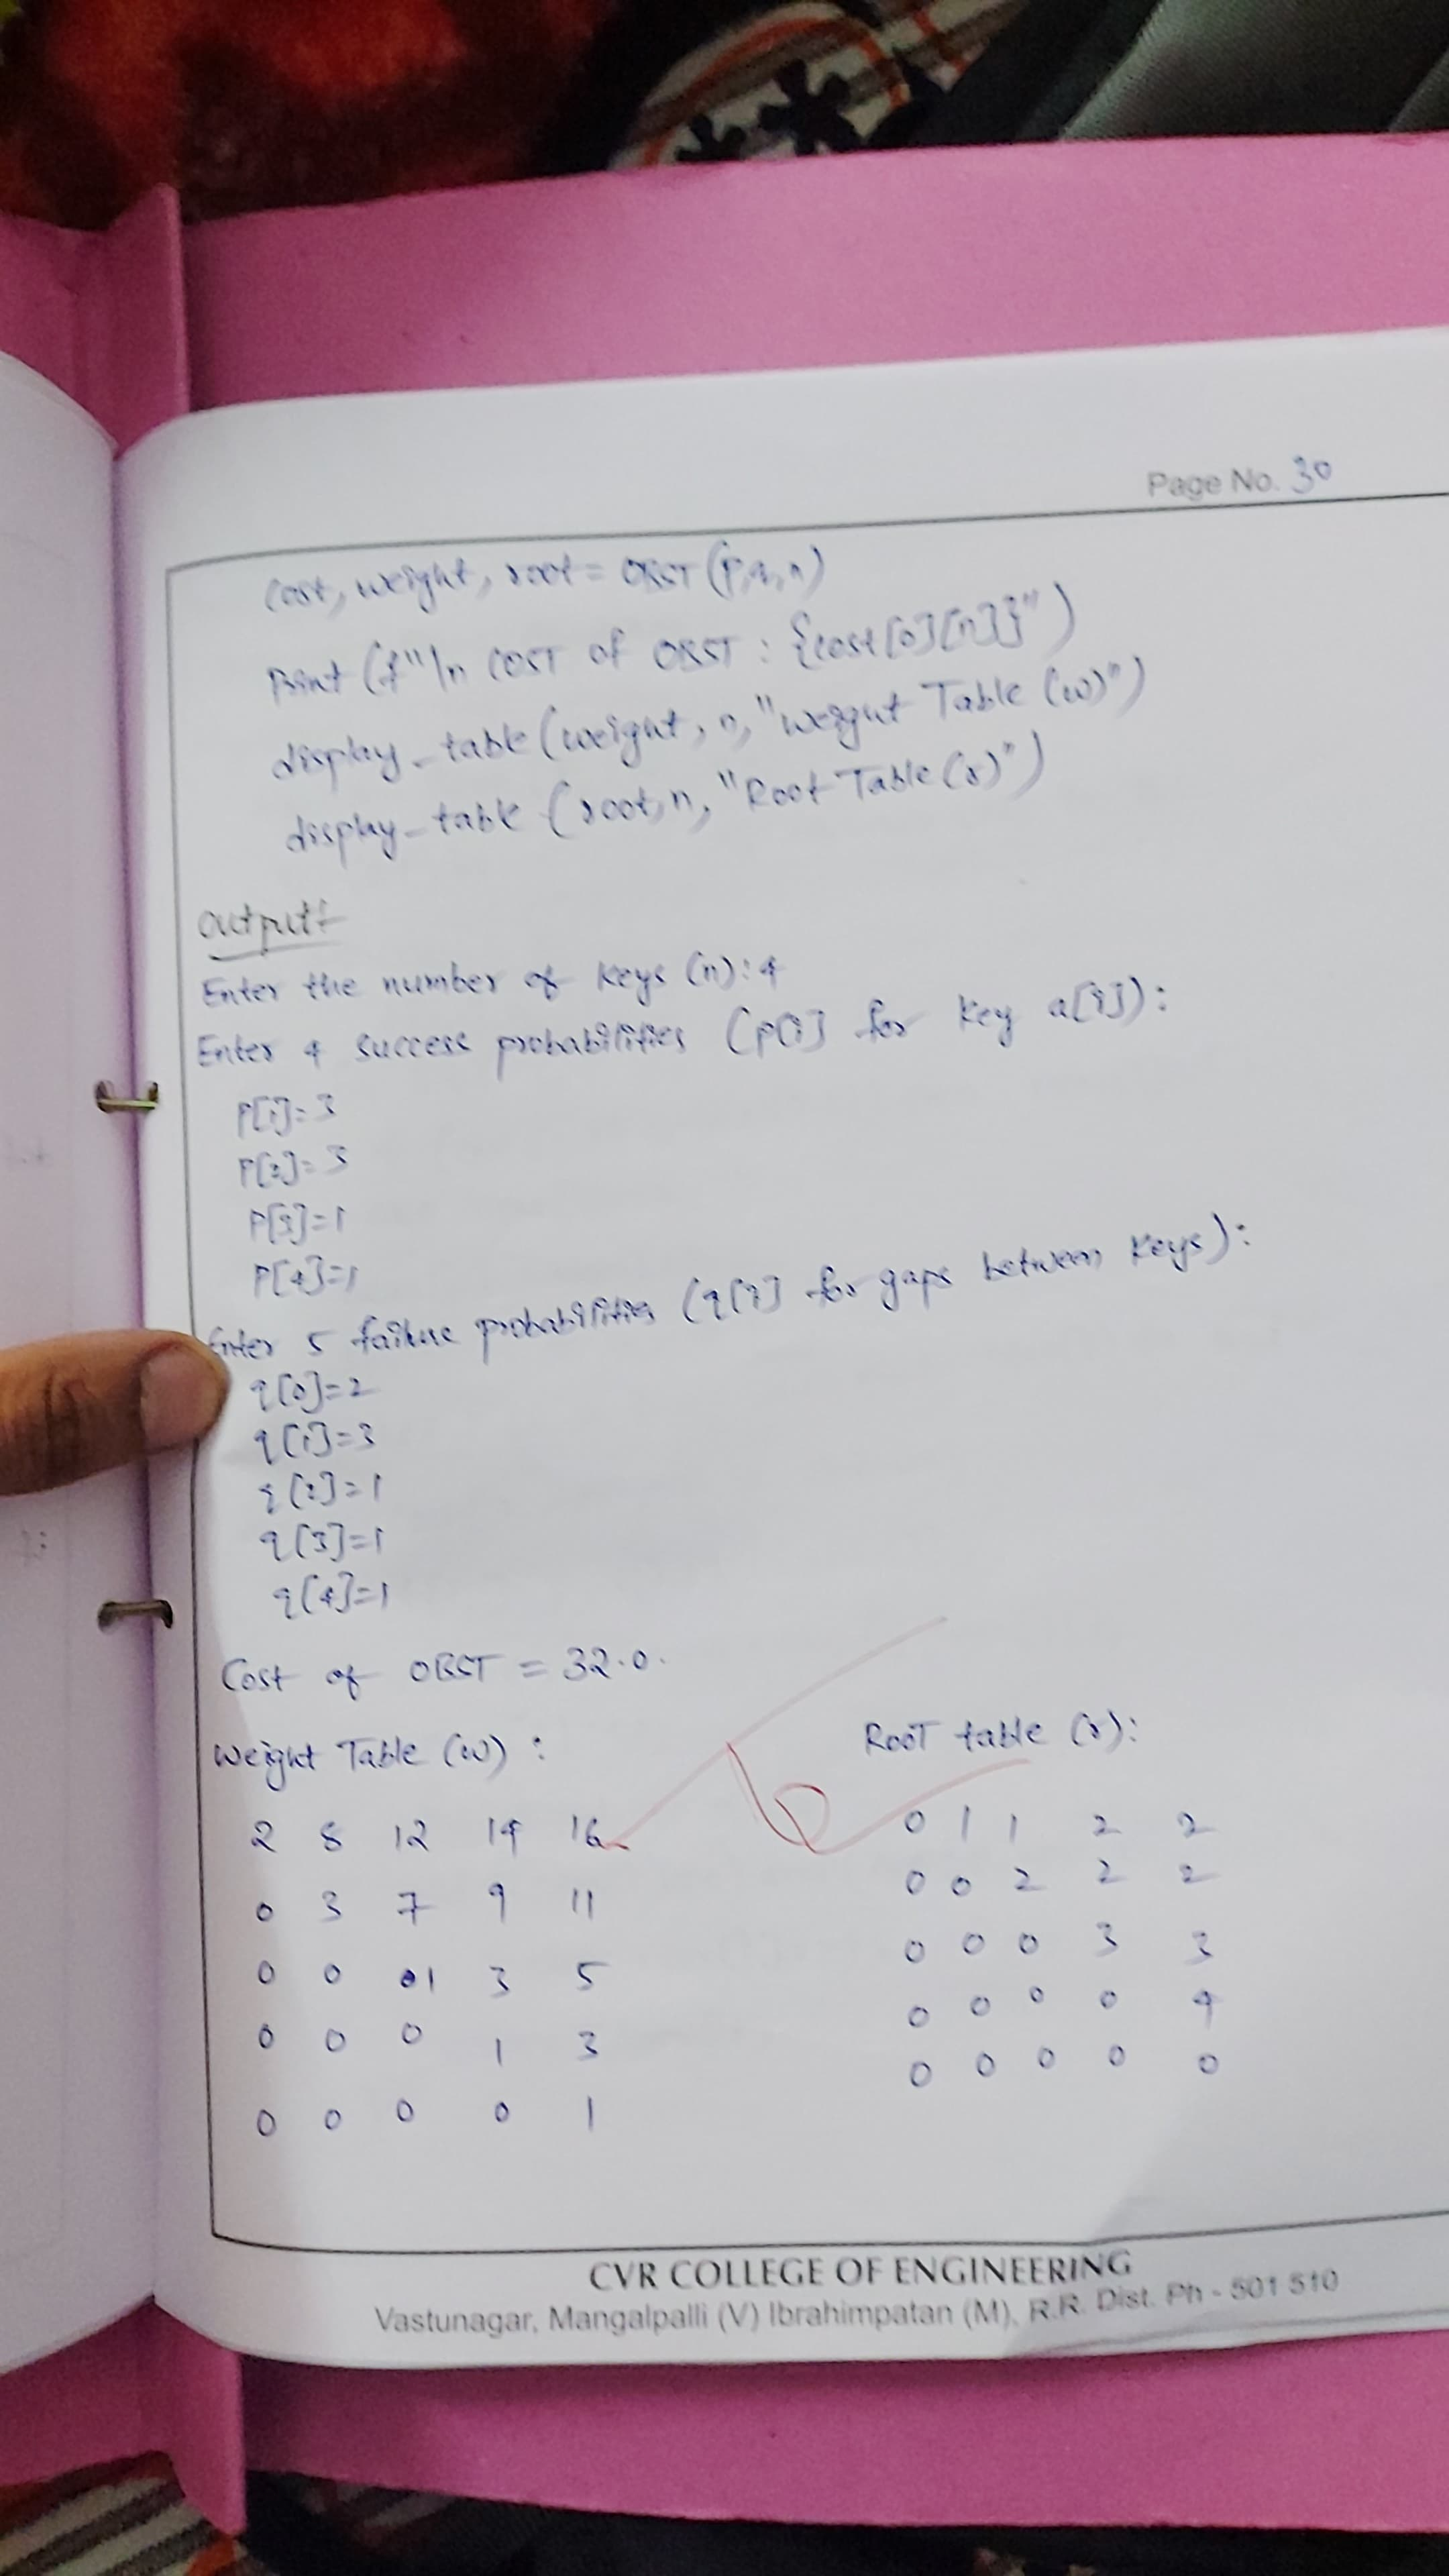 Page No. 30
cost, weight, root = OBST (p,q,n)
Print (f"\n COST of OBST : {cost[0][n]}")
display_table (weight, n, "weight Table (w)")
display_table (root, n, "Root Table (r)")
output:
Enter the number of keys (n): 4
Enter 4 success probabilities (p[i] for key a[i]):
P[1]= 3
P[2]= 3
P[3]=1
P[4]=1
Enter 5 failure probabilities (q[i] for gaps between keys):
q[0]=2
q[1]=3
q[2]=1
q[3]=1
q[4]=1
Cost of OBST = 32.0.
Weight Table (w) :
2 8 12 14 16
0 3 7 9 11
0 0 1 3 5
0 0 0 1 3
0 0 0 0 1
ROOT table (r):
0 1 1 2 2
0 0 2 2 2
0 0 0 3 3
0 0 0 0 4
0 0 0 0 0
CVR COLLEGE OF ENGINEERING
Vastunagar, Mangalpalli (V) Ibrahimpatan (M), R.R. Dist. Ph - 501 510